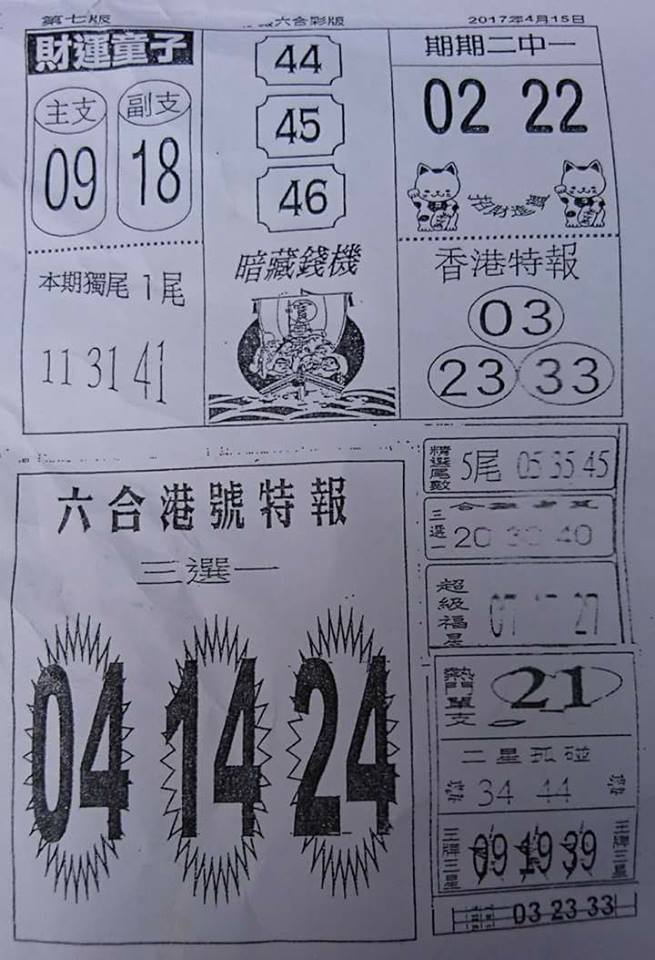 第七版
六合彩版
2017年4月15日
財運童子
主支
副支
09
18
本期獨尾 1尾
11 31 41
44
45
46
暗藏錢機
期期二中一
02 22
香港特報
03
23 33
六合港號特報
三選一
04 14 24
精選尾數
5尾 05 35 45
三選一
20 30 40
超級福星
07 17 27
熱門單支
21
二星孤碰
34 44
三牌三星
09 19 39
三牌三星
03 23 33